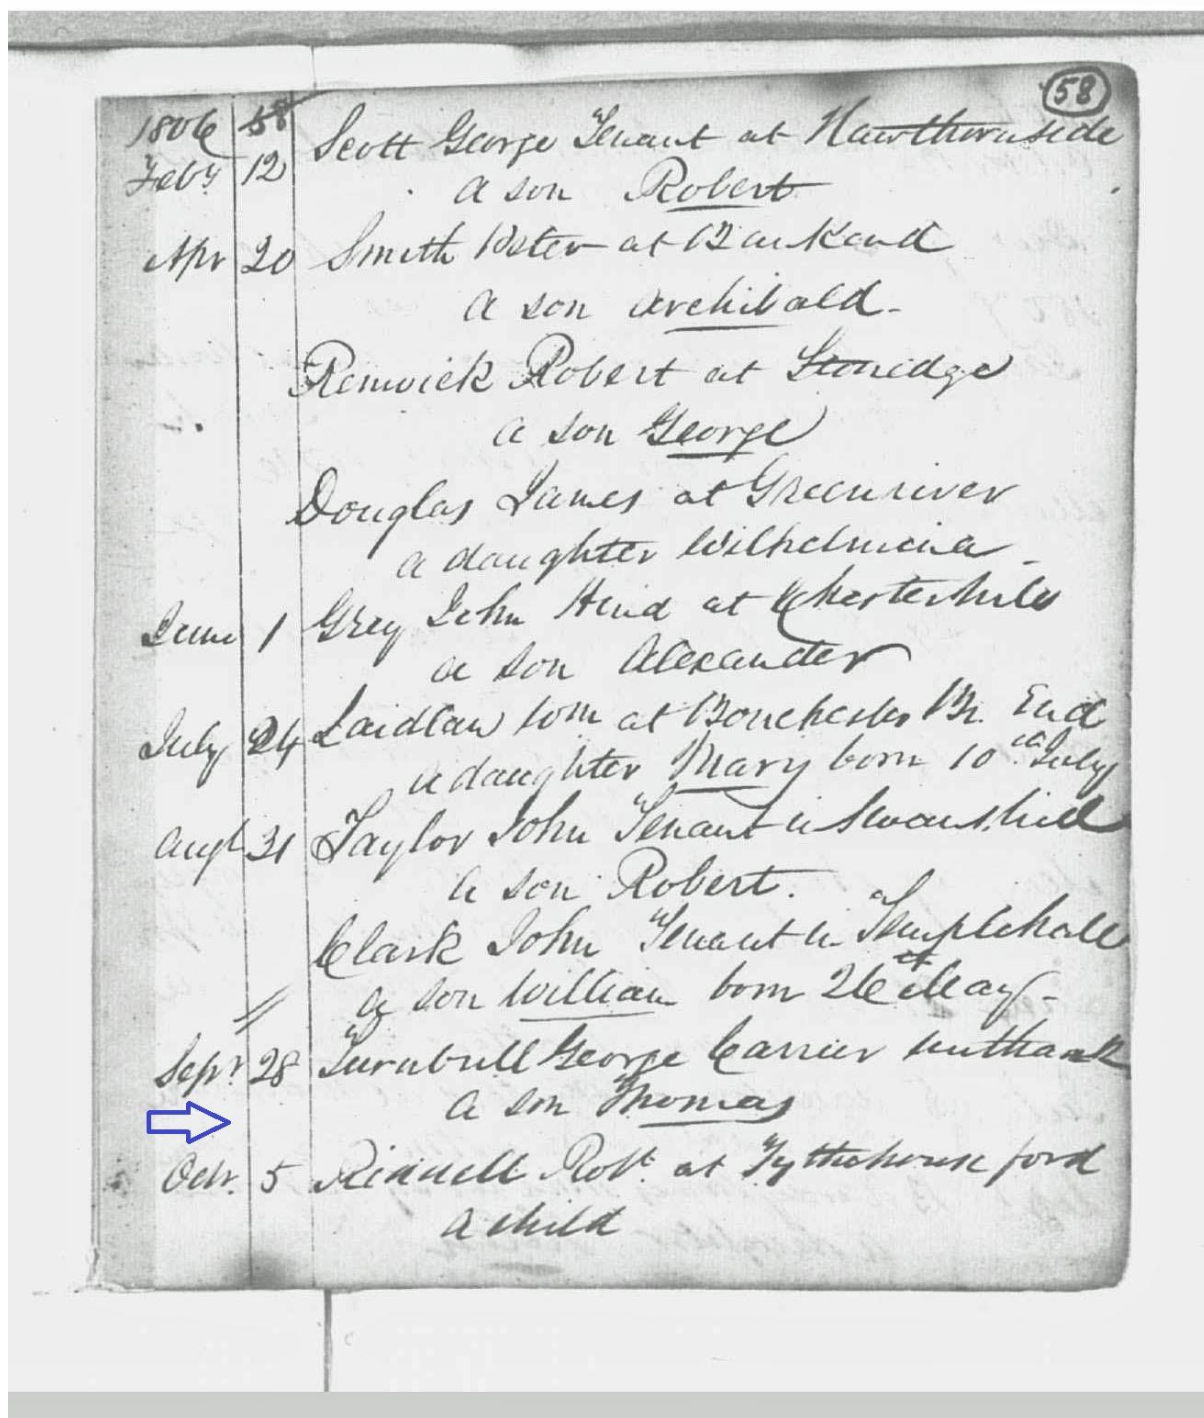 58
1806 58
Feby 12 Scott George Tenant at Hawthornside
a son Robert
Apr 20 Smith Peter at Bankend
a son Archibald -
Renwick Robert at Stonedge
a son George
Douglas James at Greenriver
a daughter Wilhelmina
June 1 Grey John Hind at Chesterhall
a son Alexander
July 24 Laidlaw Wm at Bonchester Br. End
a daughter Mary born 10th July
Augt 31 Taylor John Tenant in Swanshiel
a son Robert.
Clark John Tenant in Templehall
a son William born 26 May -
Sepr 28 Turnbull George Carrier unthank
a son Thomas
Octr. 5 Robt at Tythehouse ford
a child